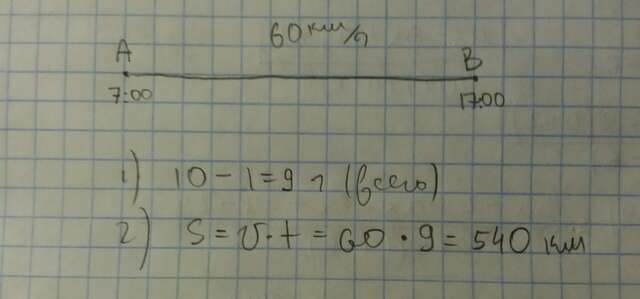 60 км/ч
A B
7:00 17:00
1) 10 - 1 = 9 ч (всего)
2) S = υ · t = 60 · 9 = 540 км